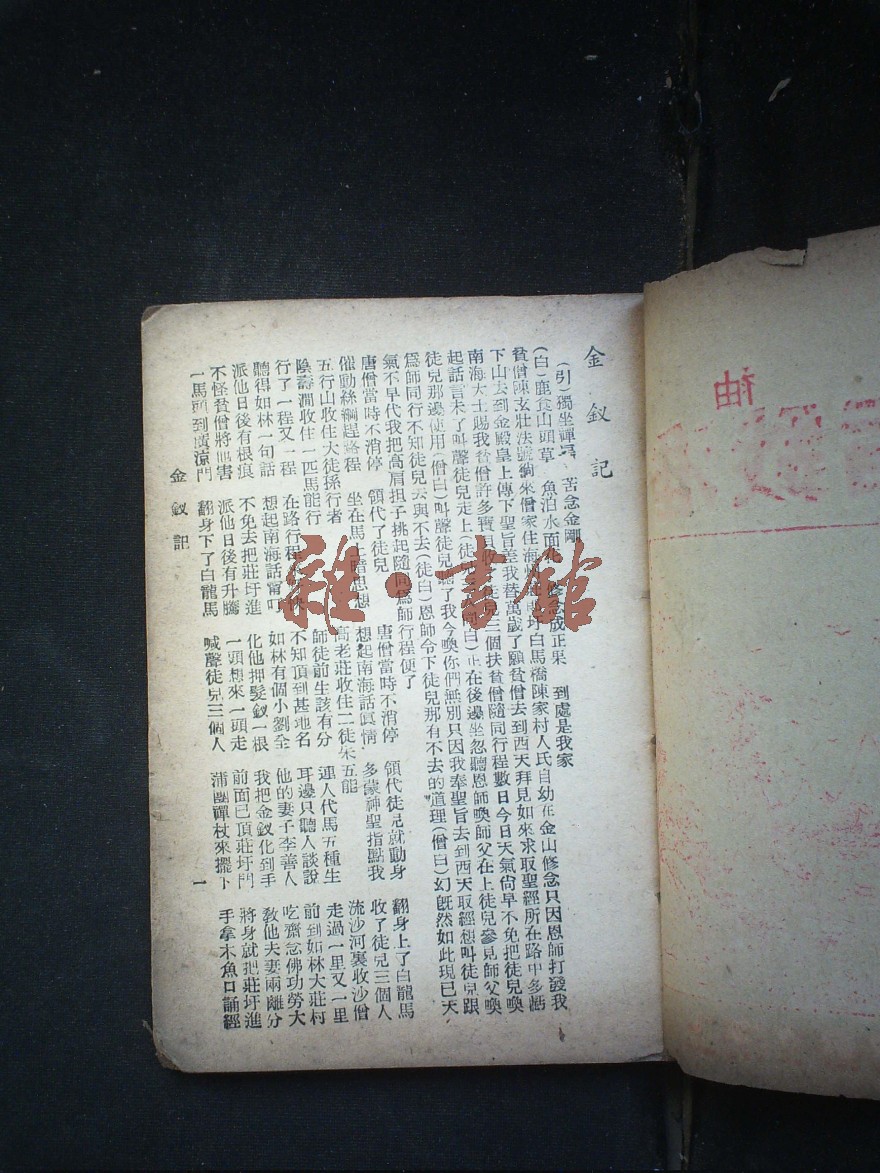 金釵記
(引)獨坐禪 苦念金剛 修念成正果 到處是我家
(白)鹿食山頭草 魚泊水面
貧僧陳玄壯法號 來僧家住海州 白馬橋陳家村人氏自幼在金山修念只因恩師打發我
下山去到金殿皇上傳下聖旨差我替萬歲了願貧僧去到西天拜見如來求取聖經所在路中多虧
南海大士賜我貧僧許多寶 收 徒兒三個扶貧僧隨同行程數日今日天氣尙早不免把徒兒喚
起話言未了叫聲徒兒走上(徒 白)正在後邊坐忽聽恩師喚師父在上徒兒參見師父喚
徒兒那邊使用(僧白)叫聲徒兒 了我今喚你們無別只因我奉聖旨去到西天取經想叫徒兒跟
爲師同行不知徒兒去與不去(徒白)恩師令下徒兒那有不去的道理(僧白)幻旣然如此現已天
氣不早代我把高肩担子挑起隨同爲師行程便了
唐僧當時不消停 領代了徒兒 唐僧當時不消停 領代徒兒就動身 翻身上了白龍馬
催動絲綱趕路程 坐在馬上暗思想 想起南海話眞情 多蒙神聖指點我 收了徒兒三個人
五行山收住大徒孫行者 高老莊收住二徒朱五能 流沙河裏收沙僧
陰壽澗收住一匹馬能行 師徒前生該有分 連人代馬五種生 走過一里又一里
行了一程又一程 在路行程 快 不知頂到甚地名 耳邊只聽人談說 前到如林大莊村
聽得如林一句話 想起南海話甯叮 如林有個小劉全 他的妻子李善人 吃齋念佛功勞大
派他日後有根痕 派他日後有升騰 化他押髮釵一根 我把金釵化到手 敎他夫妻兩離分
不怪貧僧將他害 不免去把莊圩進 一頭想來一頭走 前面已頂莊圩門 將身就把莊圩進
一馬頭到廣涼門 翻身下了白龍馬 喊聲徒兒三個人 蒲團禪杖來擺卜 手拿木魚口誦經
金釵記
一
袖
雜·書館